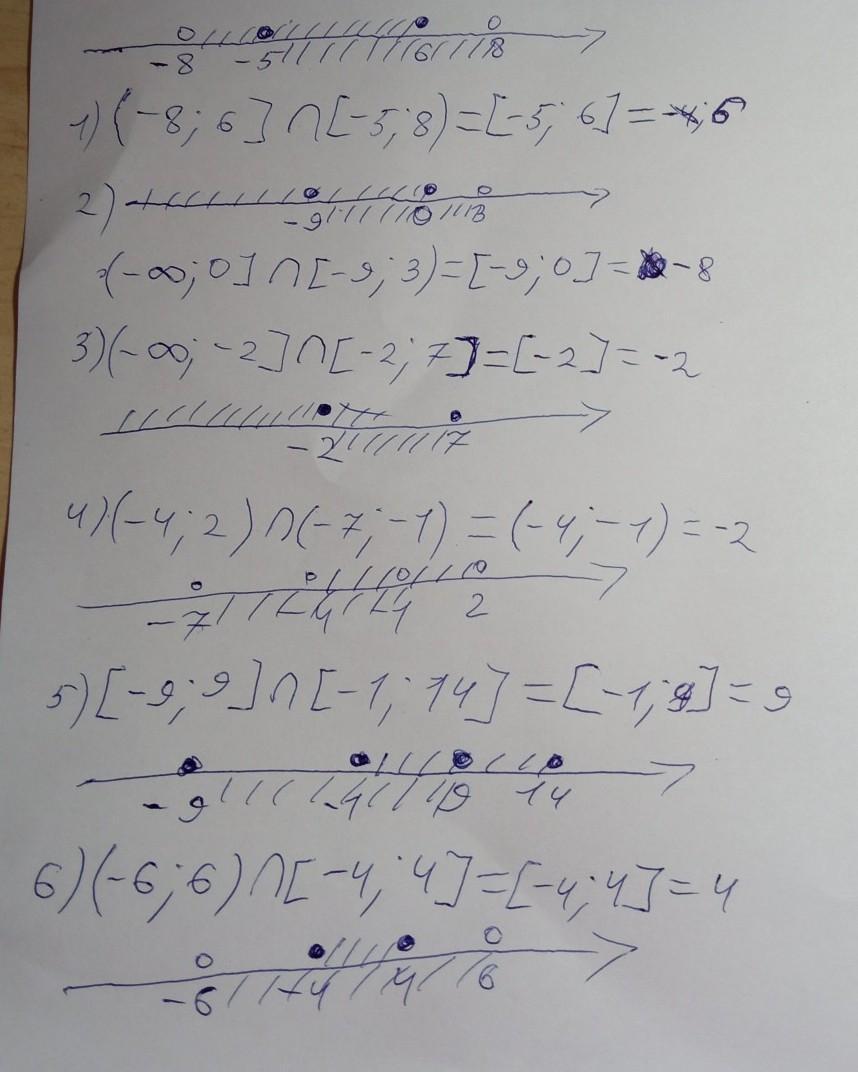 -8 -5 6 8
1) (-8; 6] ∩ [-5; 8) = [-5; 6] = 6
2) -9 0 3
(-∞; 0] ∩ [-9; 3) = [-9; 0] = -8
3) (-∞; -2] ∩ [-2; 7] = [-2] = -2
-2 7
4) (-4; 2) ∩ (-7; -1) = (-4; -1) = -2
-7 -4 -1 2
5) [-9; 9] ∩ [-1; 14] = [-1; 9] = 9
-9 -1 9 14
6) (-6; 6) ∩ [-4; 4] = [-4; 4] = 4
-6 -4 4 6